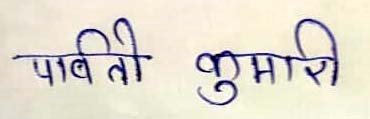 पार्वती कुमारी